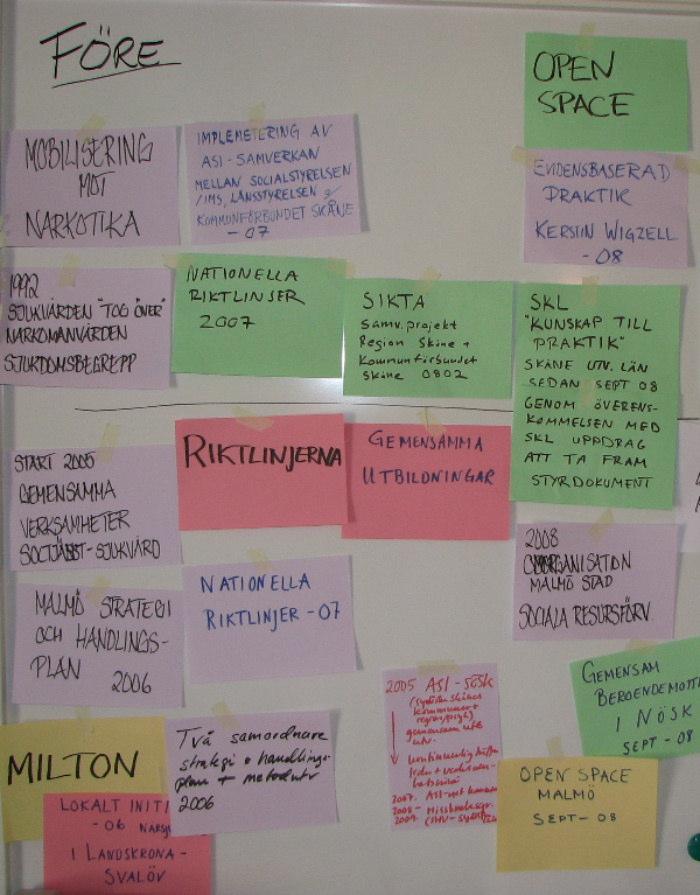 FÖRE
OPEN
SPACE
MOBILISERING
MOT
NARKOTIKA
IMPLEMETERING AV
ASI-SAMVERKAN
MELLAN SOCIALSTYRELSEN
/IMS, LÄNSSTYRELSEN &
KOMMUNFÖRBUNDET SKÅNE
-07
EVIDENSBASERAD
PRAKTIK
KERSTIN WIGZELL
-08
1992
SJUKVÅRDEN "TOG ÖVER"
NARKOMANVÅRDEN
SJUKDOMSBEGREPP
NATIONELLA
RIKTLINJER
2007
SIKTA
Samv.projekt
Region Skåne +
Kommunförbundet
Skåne 0802
SKL
"KUNSKAP TILL
PRAKTIK"
SKÅNE UTV. LÄN
SEDAN SEPT 08
GENOM ÖVERENS-
KOMMELSEN MED
SKL UPPDRAG
ATT TA FRAM
STYRDOKUMENT
START 2005
GEMENSAMMA
VERKSAMHETER
SOCTJÄNST-SJUKVÅRD
RIKTLINJERNA
GEMENSAMMA
UTBILDNINGAR
2008
OMORGANISATION
MALMÖ STAD
SOCIALA RESURSFÖRV.
MALMÖ STRATEGI
OCH HANDLINGS-
PLAN 2006
NATIONELLA
RIKTLINJER -07
2005 ASI-SÖSK
gemensam utb
GEMENSAM
BEROENDEMOTT
I NÖSK
SEPT -08
MILTON
Två samordnare
strategi o handlings-
plan + metodutv
2006
OPEN SPACE
MALMÖ
SEPT-08
LOKALT INITI
-06
I LANDSKRONA-
SVALÖV